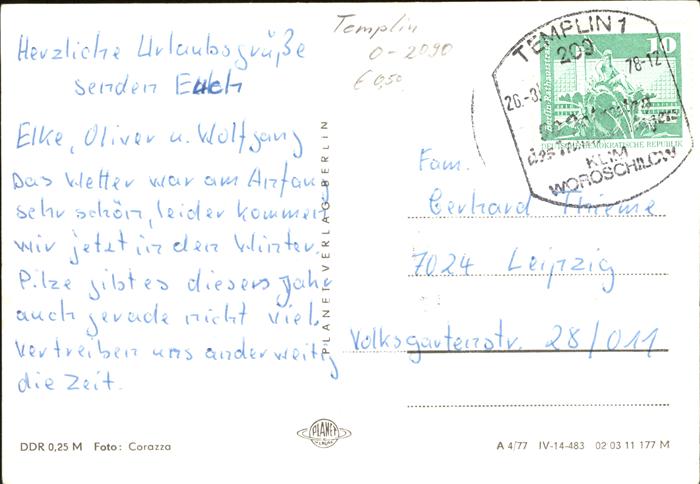 Templin
0-2090
€ 0,50
Herzliche Urlaubsgrüße
senden Euch
Elke, Oliver u. Wolfgang
Das Wetter war am Anfang
sehr schön, leider kommen
wir jetzt in den Winter.
Pilze gibt es dieses Jahr
auch gerade nicht viel.
Vertreiben uns anderweitig
die Zeit.
DDR 0,25 M Foto: Corazza
PLANET VERLAG BERLIN
PLANET
VERLAG
TEMPLIN 1
209
26.-3.
78-12
KLIM
WOROSCHILOW
10
Berlin-Rathausstraße
DEUTSCHE DEMOKRATISCHE REPUBLIK
Fam.
Gerhard Thieme
7024 Leipzig
Volksgartenstr. 28/011
A 4/77 IV-14-483 02 03 11 177 M